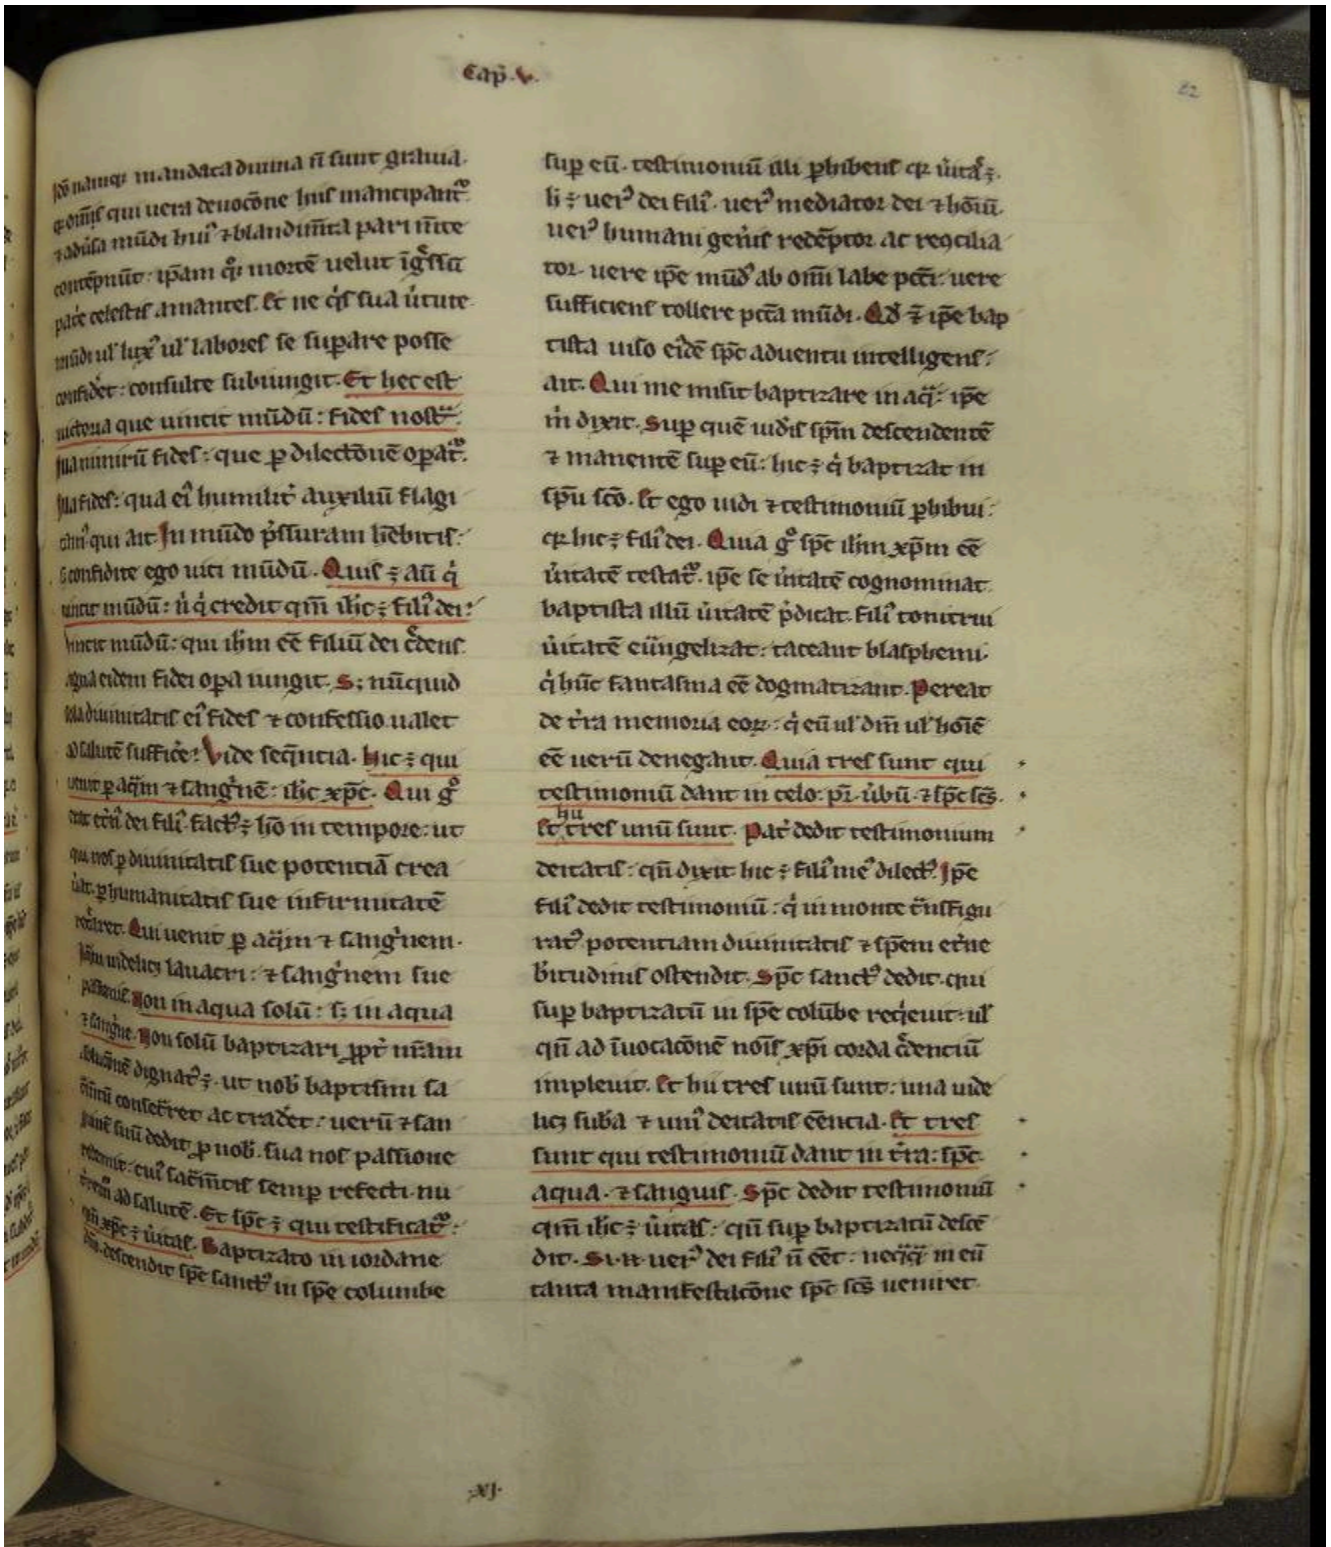 Cap̄. v.
82
namqꝫ mandata diuina n̄ sunt grauia.
qui uera deuoc̄one huiꝰ mancipant᷑
mūdi huiꝰ ⁊ blandim̄ta pari m̄te
contēpnūt: ip̄am qͦqꝫ mortē uelut
celestis amantes. Et ne qͥs sua uͥtute
ul' labores se suꝑare posse
confidet: consulte subiungit. Et hec est
uictoria que uincit mūdū: fides nostᷓ.
fides: que ꝑ dilectōnē oꝑat᷑.
fides: qua eiꝰ humilit᷑ auxiliū flagi
qui ait In mūdo p͛ssuram hēbitis:
confidite ego uici mūdū. Quis ÷ aū qͥ
uincit mūdū: n̓ qͥ credit qm̄ ih̄c ÷ filiꝰ dei:
uincit mūdū: qui ih̄m eē filiū dei c͛dens.
eidem fidei oꝑa iungit. Sꝫ nūcquid
diuinitatis eiꝰ fides ⁊ confessio ualet
ad salutē suffic͛e? Vide seq̄ntia. Hic ÷ qui
uenit ꝑ aq̄m ⁊ sangͥnē: ih̄c xp̄c. Qui gͦ
dei filiꝰ factꝰ ÷ hō in tempore: ut
qui nos ꝑ diuinitatis sue potentiā crea
ꝑ humanitatis sue infirmitatē
Qui uenit ꝑ aq̄m ⁊ sangͥnem.
lauacri: ⁊ sangͥnem sue
Non in aqua solū: sꝫ in aqua
⁊ sangͥne. Non solū baptizari ꝓpt᷑ n̄ram
dignatꝰ ÷. ut nob̄ baptismi sa
consec͛ret ac trad͛et: uerū ⁊ san
suū dedit ꝓ nob̄. sua nos passione
sac̄m̄tis semꝑ refecti nu
ad salutē. Et sp̄c ÷ qui testificat᷑:
qm̄ xp̄c ÷ uͥitas. Baptizato in iordane
descendit sp̄c sanctꝰ in sp̄e columbe
suꝑ eū. testimoniū illi ꝑhibens qꝛ uͥitᷓ ÷.
h̓ ÷ uerꝰ dei filiꝰ. uerꝰ mediator dei ⁊ hoīū.
uerꝰ humani gen͛is redēptor ac recↄcilia
tor. uere ip̄e mūdꝰ ab om̄i labe pcc̄i: uere
sufficiens tollere pcc̄a mūdi. Ad ÷ ip̄e bap
tista uiso eidē sp̄c aduentu intelligens:
ait. Qui me misit baptizare in aqᷓ: ip̄e
m̓ dixit. Suꝑ quē uid͛is sp̄m descendentē
⁊ manentē suꝑ eū: hic ÷ qͥ baptizat in
sp̄u sc̄o. Et ego uidi ⁊ testimoniū ꝑhibui:
qꝛ hic ÷ filiꝰ dei. Quia gͦ sp̄c ih̄m xp̄m eē
uͥitatē testat᷑. ip̄e se uͥitatē cognominat
baptista illū uͥitatē p͛dicat. filiꝰ tonitrui
uͥitatē eūngelizat: taceant blasphemi.
qͥ hūc fantasma eē dogmatizant. Pereat
de t͛ra memoria eoꝝ: qͥ eū ul' dm̄ ul' hoīē
eē uerū denegant. Quia tres sunt qui
testimoniū dant in celo: pr̄. uͥbū. ⁊ sp̄c sc̄s.
hii
Et tres unū sunt. Pat᷑ dedit testimonium
deitatis: qn̄ dixit hic ÷ filiꝰ meꝰ dilectꝰ. Ip̄e
filiꝰ dedit testimoniū: qͥ in monte t͛nsfigu
ratꝰ potentiam diuinitatis ⁊ sp̄em et͛ne
b̄titudinis ostendit. Sp̄c sanctꝰ dedit. qui
suꝑ baptizatū in sp̄e colūbe reqͥeuit: ul'
qn̄ ad īuocac̄onē nois̄ xp̄i corda c͛dentiū
impleuit. Et hii tres unū sunt: una uide
licꝫ sub̄a ⁊ uniꝰ deitatis eēncia. Et tres
sunt qui testimoniū dant in t͛ra: sp̄c.
aqua. ⁊ sanguis. Sp̄c dedit testimoniū
qm̄ ih̄c ÷ uͥitas: qn̄ suꝑ baptizatū descē
dit. Si .n. uerꝰ dei filiꝰ n̄ eēt: neqͣqᷓ in eū
tanta manifestac̄one sp̄c sc̄s ueniret
.xj.